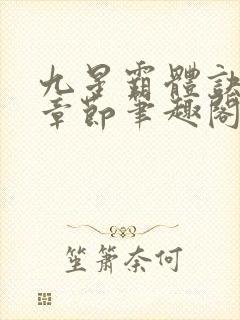 九星霸體訣
章節筆趣閣
笙簫奈何